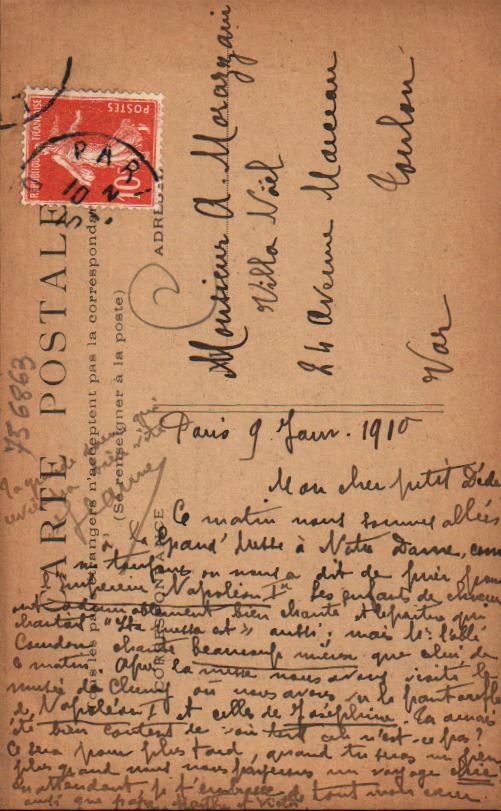 RÉPUBLIQUE FRANÇAISE
POSTES
10
PARIS
CARTE POSTALE
Tous les pays étrangers n'acceptent pas la correspondance
(Se renseigner à la poste)
CORRESPONDANCE
ADRESSE
756863
Monsieur A. Morazzani
Villa Noël
24 Avenue Marceau
Toulon
Var
Paris 9 Janv. 1910
Mon cher petit Dédé
Ce matin nous sommes allées
à la Grand' Messe à Notre Dame, comme
toujours on nous a dit de prier pour
l'empereur Napoléon Ier. Les enfants de chœur
ont admirablement bien chanté
chantait "Ite missa est" aussi; mais Mr l'abbé
chante beaucoup mieux que celui de
ce matin. Après la messe nous avons visité le
musée de Cluny où nous avons vu la pantoufle
de Napoléon I et celles de Joséphine. Tu aurais
été bien content de voir tout cela n'est-ce pas?
Ce sera pour plus tard, quand tu seras un peu
plus grand nous nous payerons un voyage
en attendant, je t'embrasse de tout mon cœur
ainsi que papa, Marthe et Victor
Jeanne